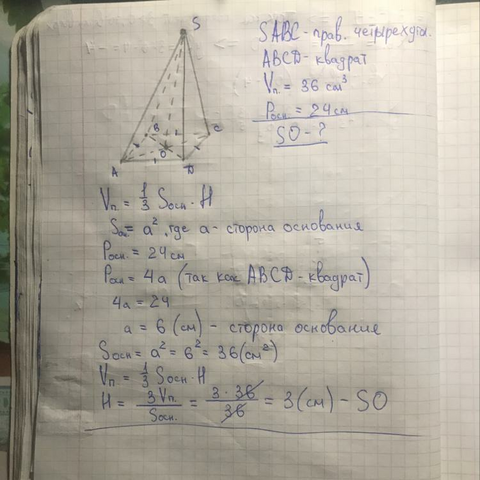 SABC - прав. четырехуг.
ABCD - квадрат
Vп. = 36 см³
Pосн = 24 см
SO - ?
S
B
C
O
A
D
Vп. = 1/3 Sосн · H
Sосн = a², где a - сторона основания
Pосн. = 24 см
Pосн = 4a (так как ABCD - квадрат)
4a = 24
a = 6 (см) - сторона основания
Sосн = a² = 6² = 36 (см²)
Vп = 1/3 Sосн · H
H = 3Vп. / Sосн. = 3 · 36 / 36 = 3 (см) - SO